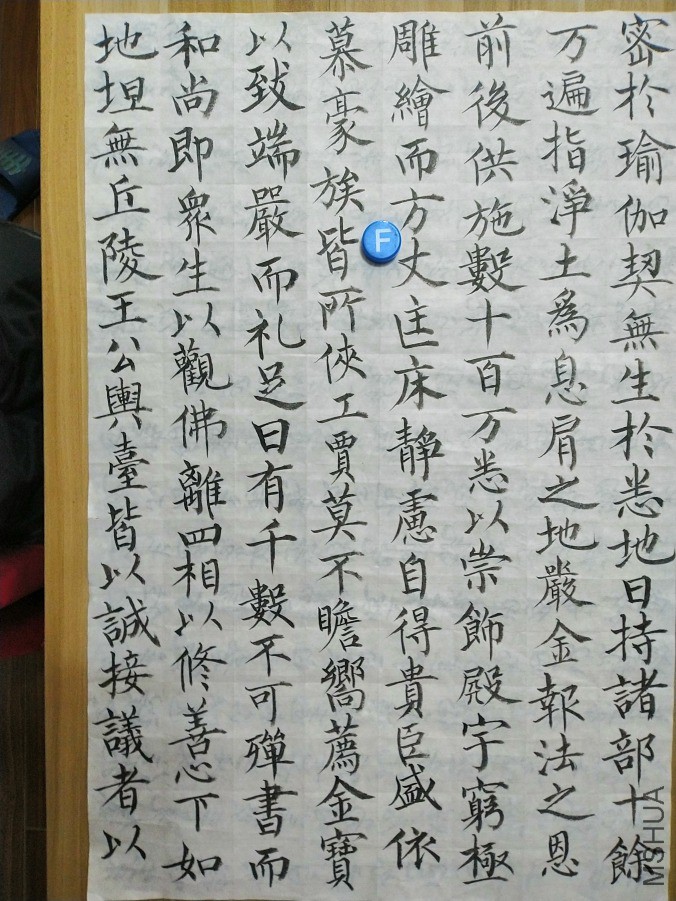 密於瑜伽契無生於悉地日持諸部十餘
万遍指淨土為息肩之地嚴金報法之恩
前後供施數十百万悉以崇飾殿宇窮極
雕繪而方丈匡床靜慮自得貴臣盛依
慕豪族皆所俠工賈莫不瞻嚮薦金寶
以致端嚴而礼足日有千數不可殫書而
和尚即衆生以觀佛離四相以修善心下如
地坦無丘陵王公輿臺皆以誠接議者以
F
MSHUA